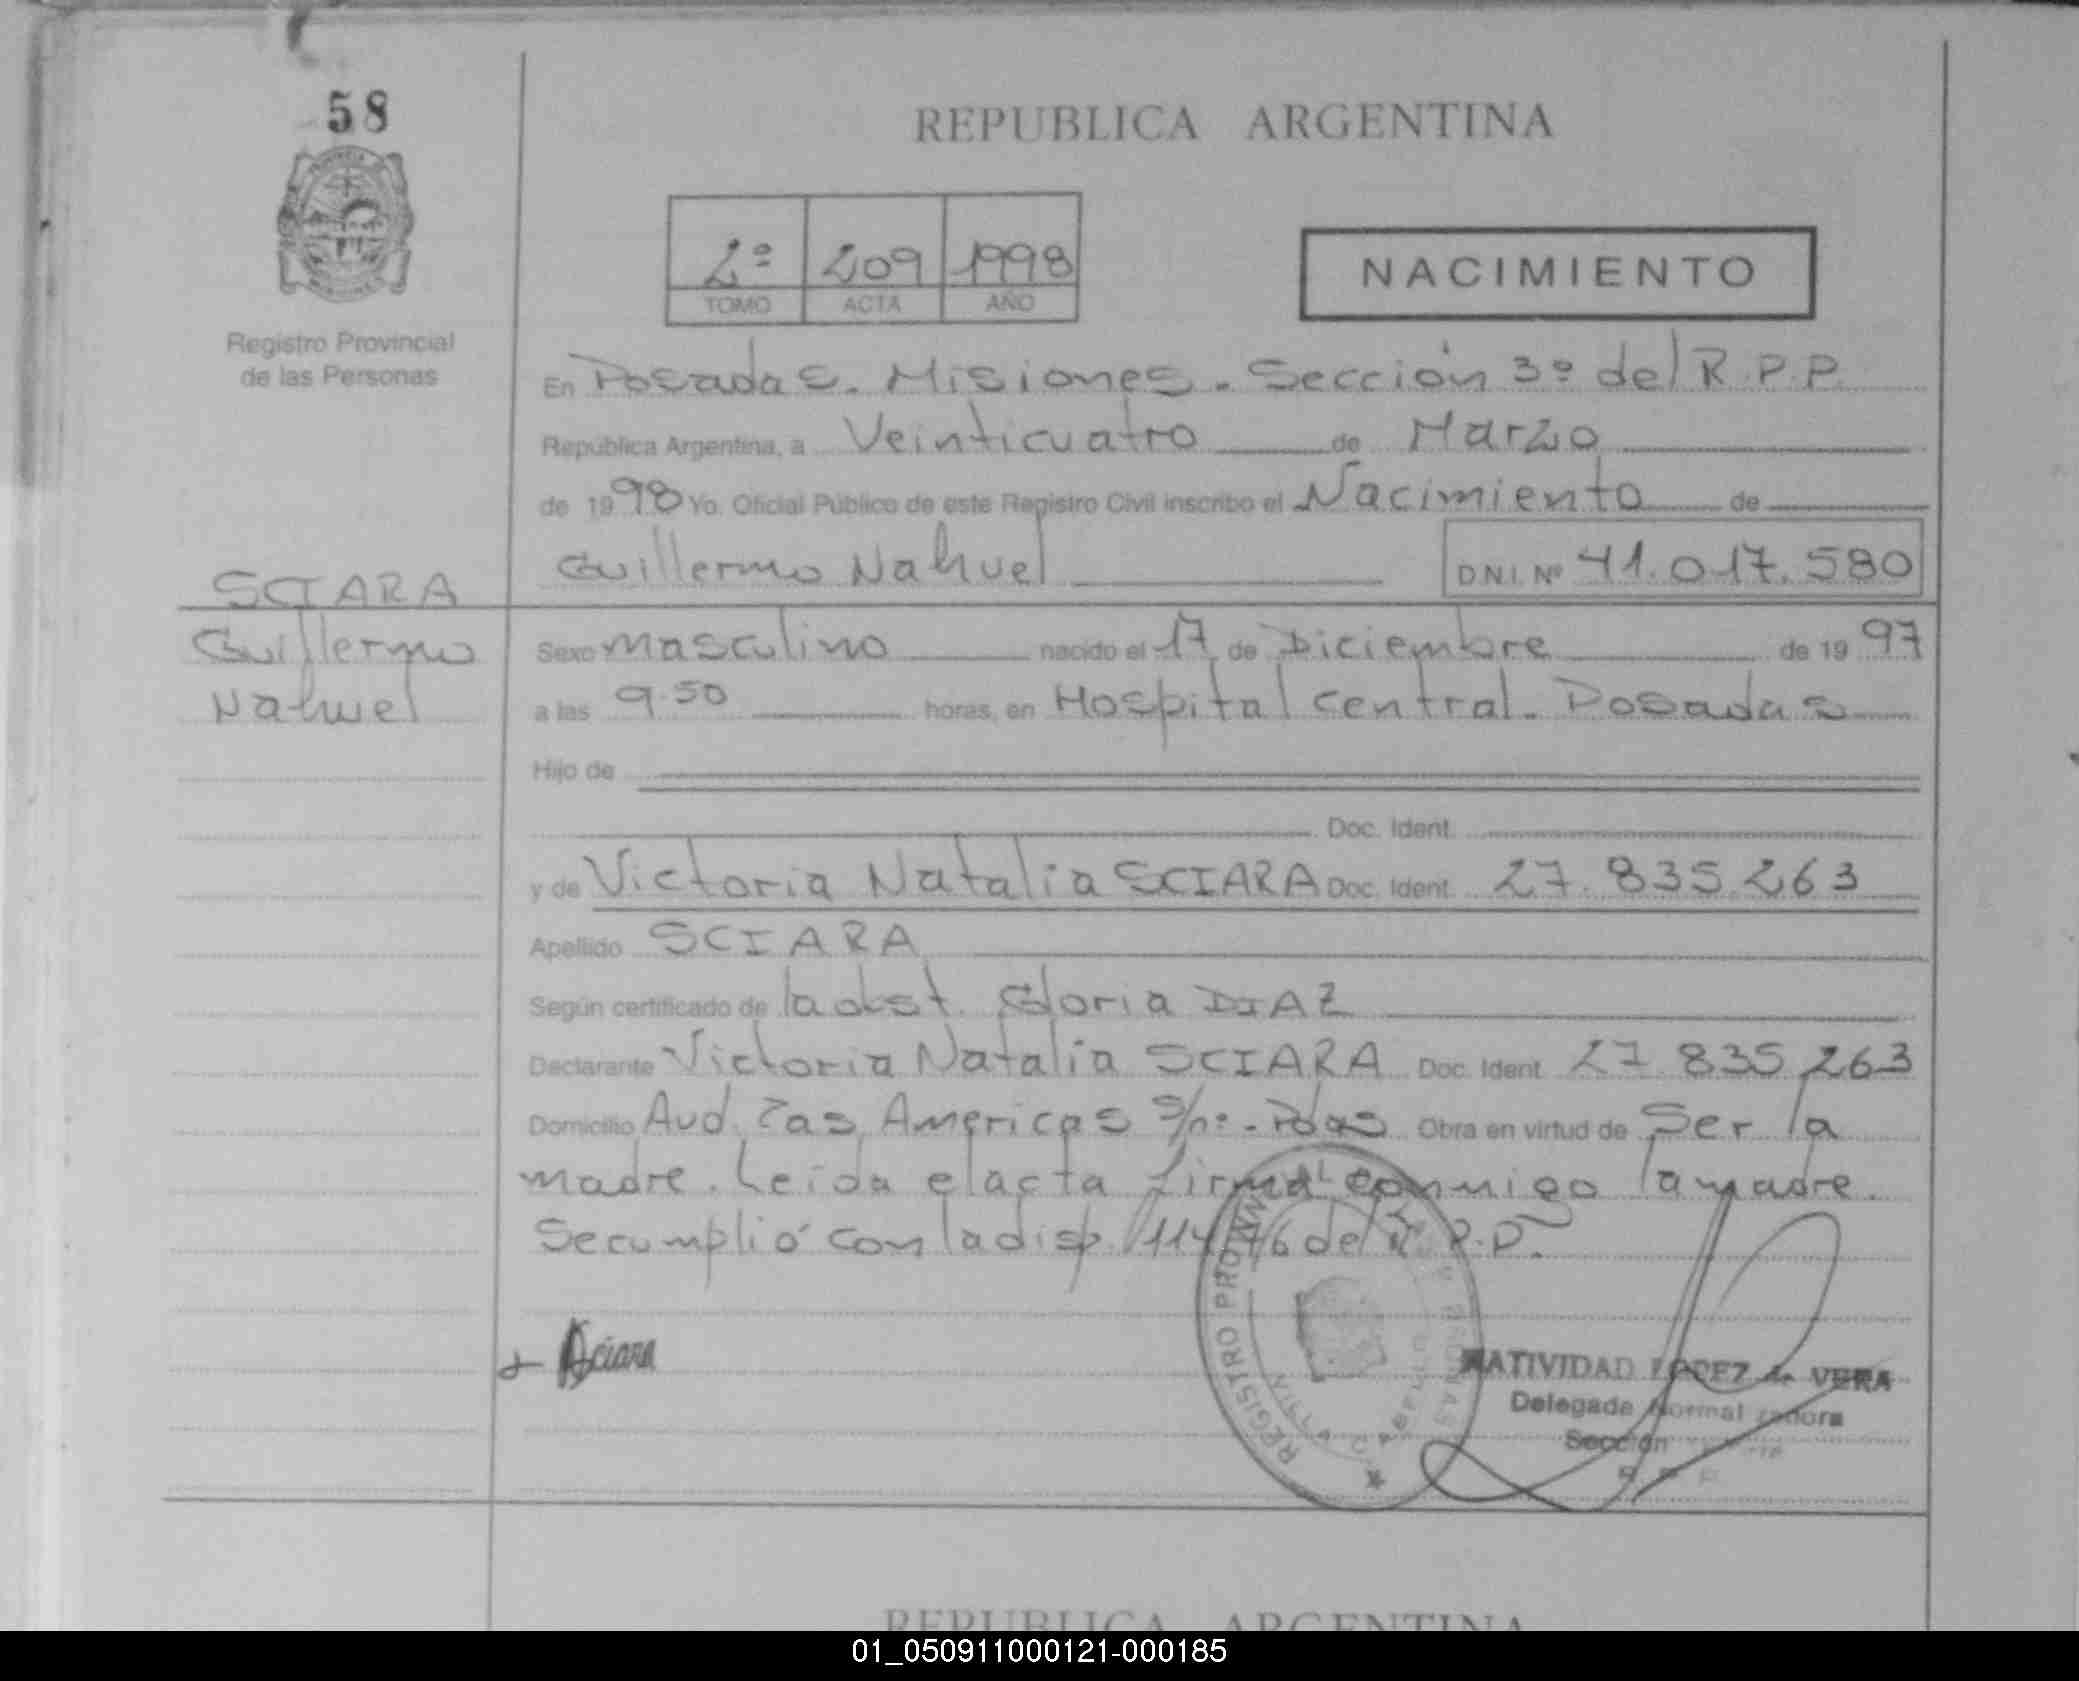 58
REPUBLICA ARGENTINA
2º 209 1998
TOMO ACTA AÑO
NACIMIENTO
Registro Provincial
de las Personas
En Posadas. Misiones. Sección 3º del R.P.P.
República Argentina, a Veinticuatro de Marzo
de 1998 Yo. Oficial Público de este Registro Civil inscribo el Nacimiento de
Guillermo Nahuel D.N.I. Nº 41.017.580
SCIARA
Guillermo
Nahuel
Sexo masculino nacido el 17 de Diciembre de 1997
a las 9.50 horas, en Hospital Central. Posadas
Hijo de
Doc. Ident.
y de Victoria Natalia SCIARA Doc. Ident. 27.835.263
Apellido SCIARA
Según certificado de la obst. Gloria DIAZ
Declarante Victoria Natalia SCIARA Doc. Ident. 27.835.263
Domicilio Avd. Las Americas s/nº - Pdas Obra en virtud de Ser la
madre. Leida el acta firma conmigo la madre.
Se cumplió con la disp. 114/76 del R.P.P.
Sciara
REGISTRO PROVINCIAL
NATIVIDAD LOPEZ de VERA
Delegada Normalizadora
Sección
R. P. P.
REPUBLICA ARGENTINA
01_050911000121-000185